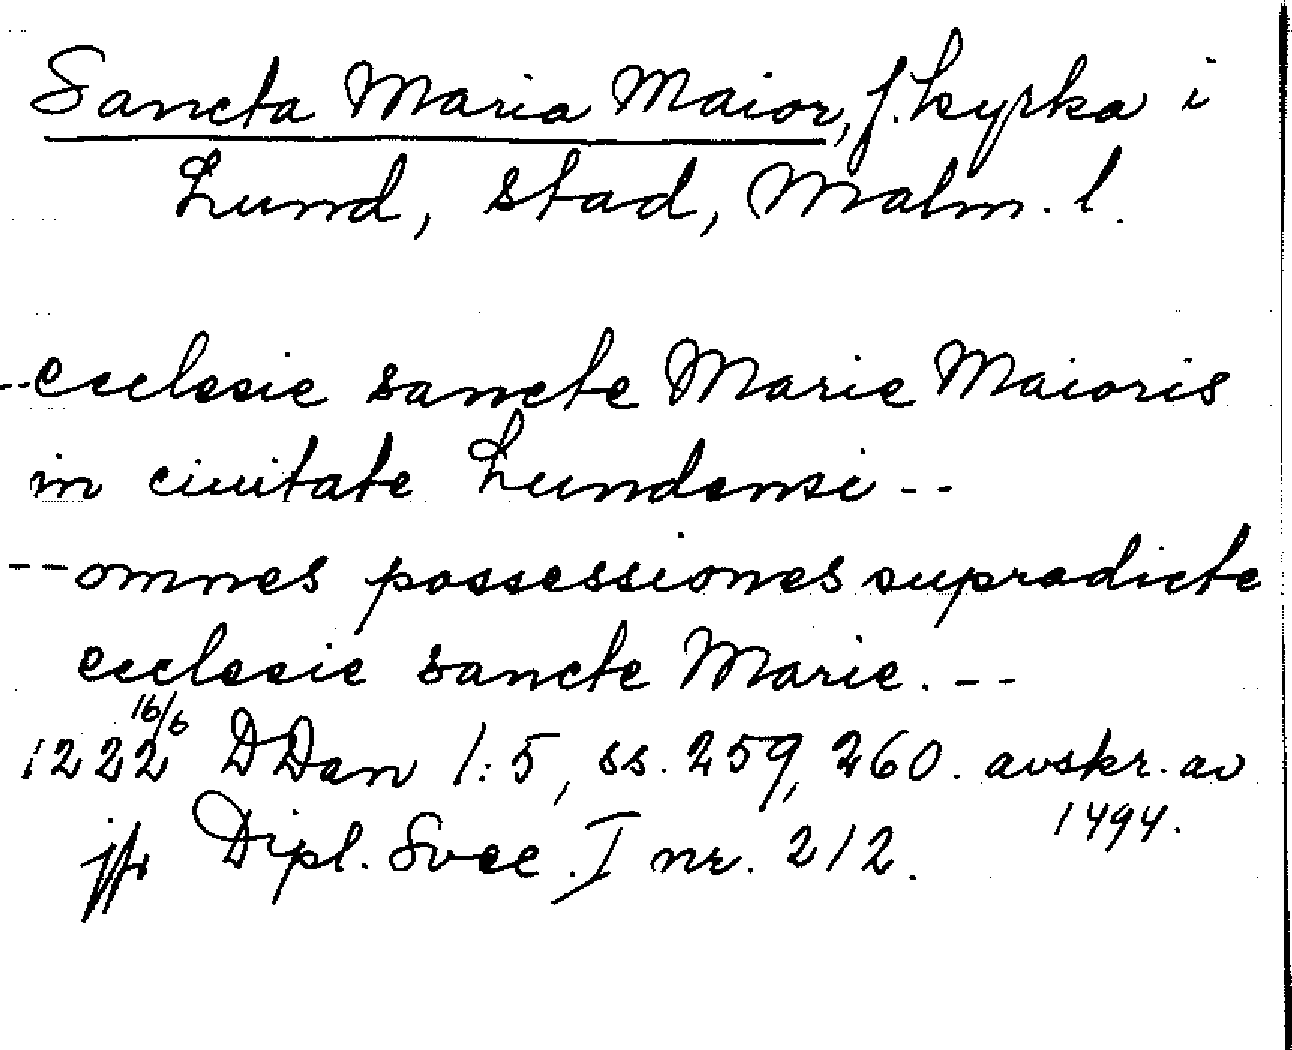 Sancta Maria Maior, f. kyrka i
Lund, stad, Malm. l.
--ecclesie sancte Marie Maioris
in ciuitate Lundensi--
--omnes possessiones supradicte
ecclesie sancte Marie.--
1222 16/6 DDan 1:5, ss. 259, 260. avskr. av
1494.
jfr Dipl. Svec. I nr. 212.